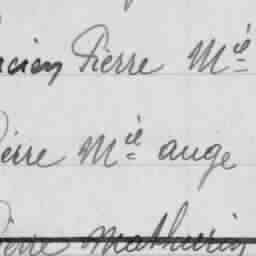 cien Pierre Mie
ierre Mel ange
Pierre Mathurin